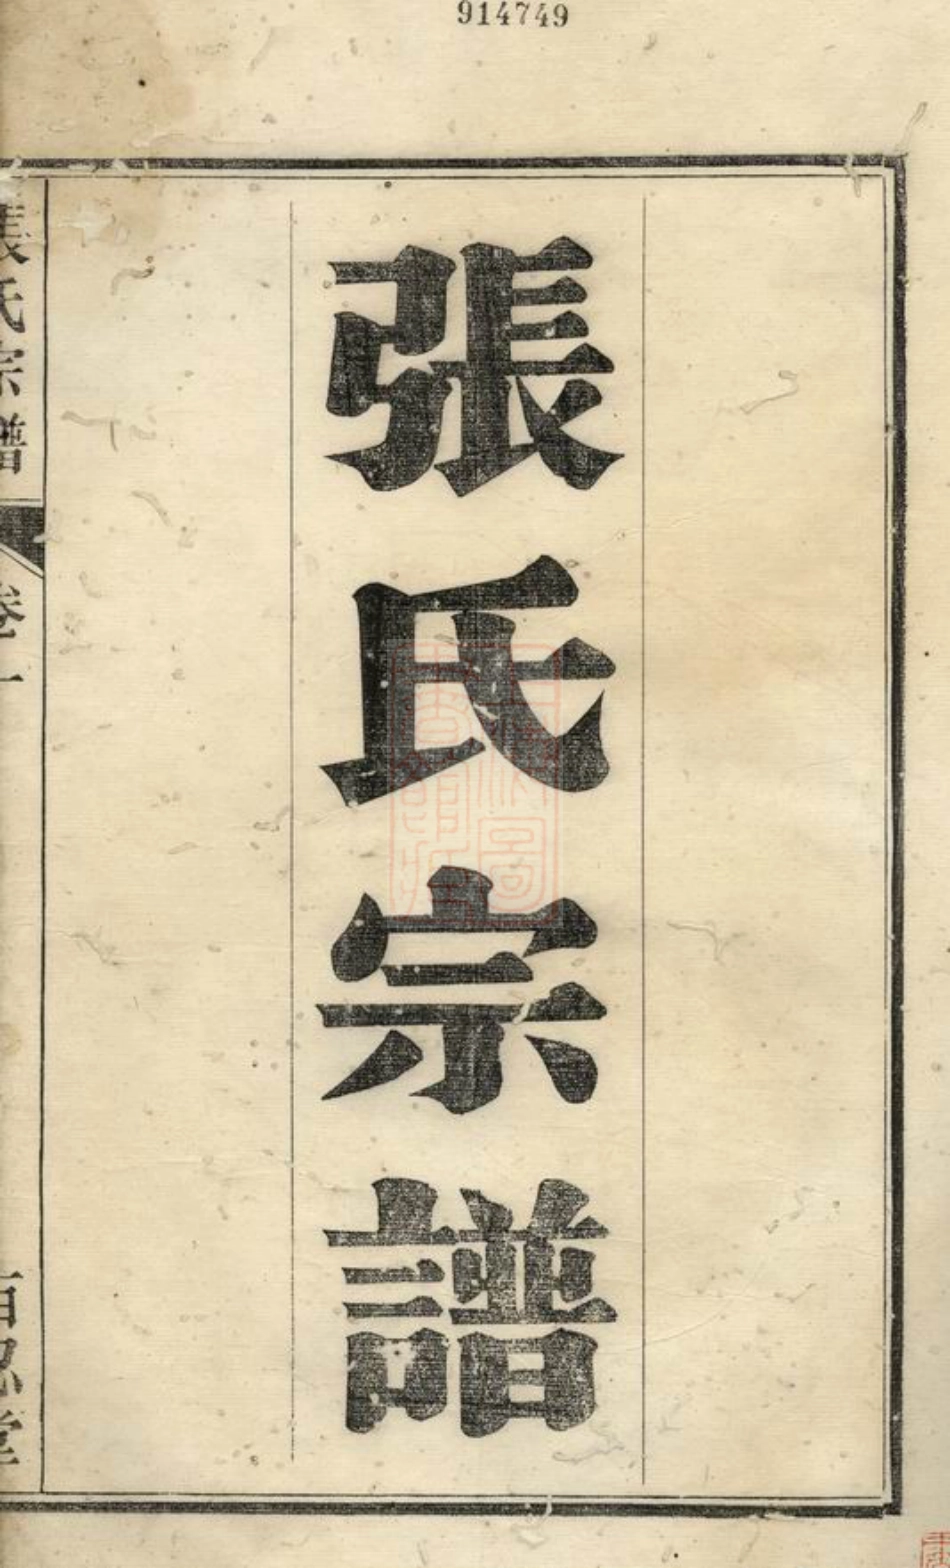 914749
張氏宗譜
張氏宗譜
卷一